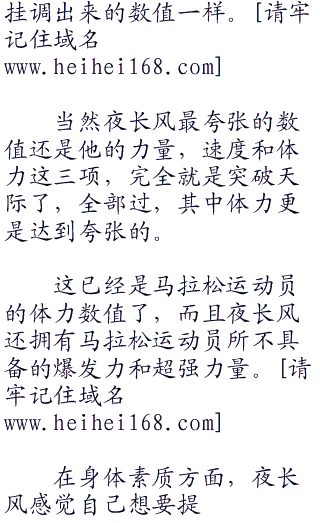 挂调出来的数值一样。[请牢
记住域名
www.heihei168.com]
当然夜长风最夸张的数
值还是他的力量，速度和体
力这三项，完全就是突破天
际了，全部过，其中体力更
是达到夸张的。
这已经是马拉松运动员
的体力数值了，而且夜长风
还拥有马拉松运动员所不具
备的爆发力和超强力量。[请
牢记住域名
www.heihei168.com]
在身体素质方面，夜长
风感觉自己想要提